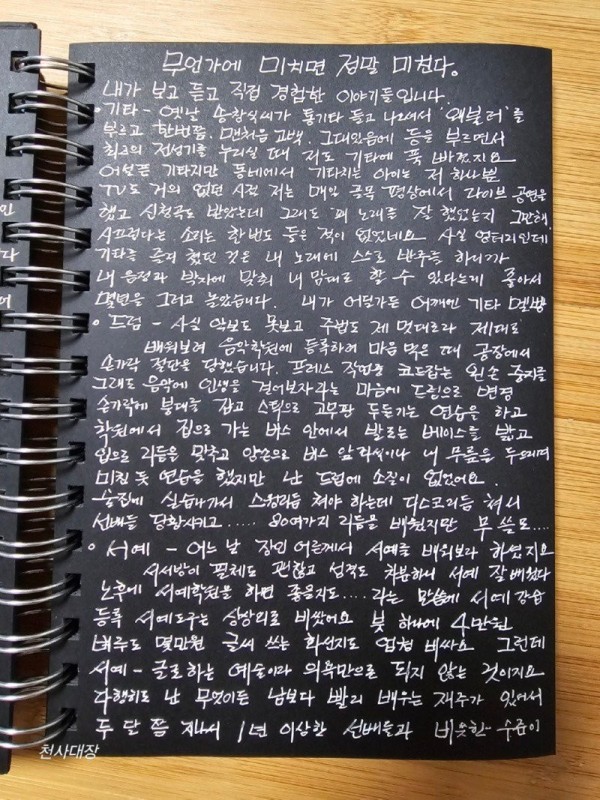 무언가에 미치면 정말 미친다.
내가 보고 듣고 직접 경험한 이야기들입니다.
• 기타 - 옛날 송창식씨가 통기타 들고 나와서 '왜불러'를
부르고 한번쯤, 맨처음 고백, 그대있음에 등을 부르면서
최고의 전성기를 누리실 때 저도 기타에 푹 빠졌지요
어설픈 기타지만 동네에서 기타치는 아이는 저 하나뿐
TV도 거의 없던 시절 저는 매일 골목 평상에서 라이브 공연을
했고 신청곡도 받았는데 그래도 노래를 잘 했었는지 그만해,
시끄럽다는 소리는 한번도 들은 적이 없었네요 사실 엉터리인데
기타를 즐겨 쳤던 것은 내 노래에 스스로 반주를 하니까
내 음정과 박자에 맞춰 내 맘대로 할 수 있다는게 좋아서
몇년을 그러고 놀았습니다. 내가 어딜가든 어깨엔 기타 멜빵
• 드럼 - 사실 악보도 못보고 주법도 제 멋대로라 제대로
배워보려 음악학원에 등록하려 마음 먹은 때 공장에서
손가락 절단을 당했습니다. 프레스 작업중 코드잡는 왼손 중지를
그래도 음악에 인생을 걸어보자라는 마음에 드럼으로 변경
손가락에 붕대를 감고 스틱으로 고무판 두들기는 연습을 하고
학원에서 집으로 가는 버스 안에서 발로는 베이스를 밟고
입으로 리듬을 맞추고 양손으로 버스 앞좌석이나 내 무릎을 두드리며
미친 듯 연습을 했지만 난 드럼에 소질이 없었어요.
술집에 실습나가서 스윙리듬 쳐야 하는데 디스코리듬 쳐서
선배들 당황시키고..... 80여가지 리듬을 배웠지만 무쓸모....
• 서예 - 어느 날 장인 어른께서 서예를 배워보라 하셨지요
서서방이 필체도 괜찮고 성격도 차분하니 서예 잘 배웠다
노후에 서예학원을 하면 좋을지도.... 라는 말씀에 서예 강습
등록 서예도구는 상상외로 비쌌어요 붓 하나에 4만원
벼루도 몇만원 글씨 쓰는 화선지도 엄청 비싸요 그런데
서예 - 글로 하는 예술이라 의욕만으로 되지 않는 것이지요
다행히도 난 무엇이든 남보다 빨리 배우는 재주가 있어서
두 달 쯤 지나서 1년 이상한 선배들과 비슷한 수준이
천사대장